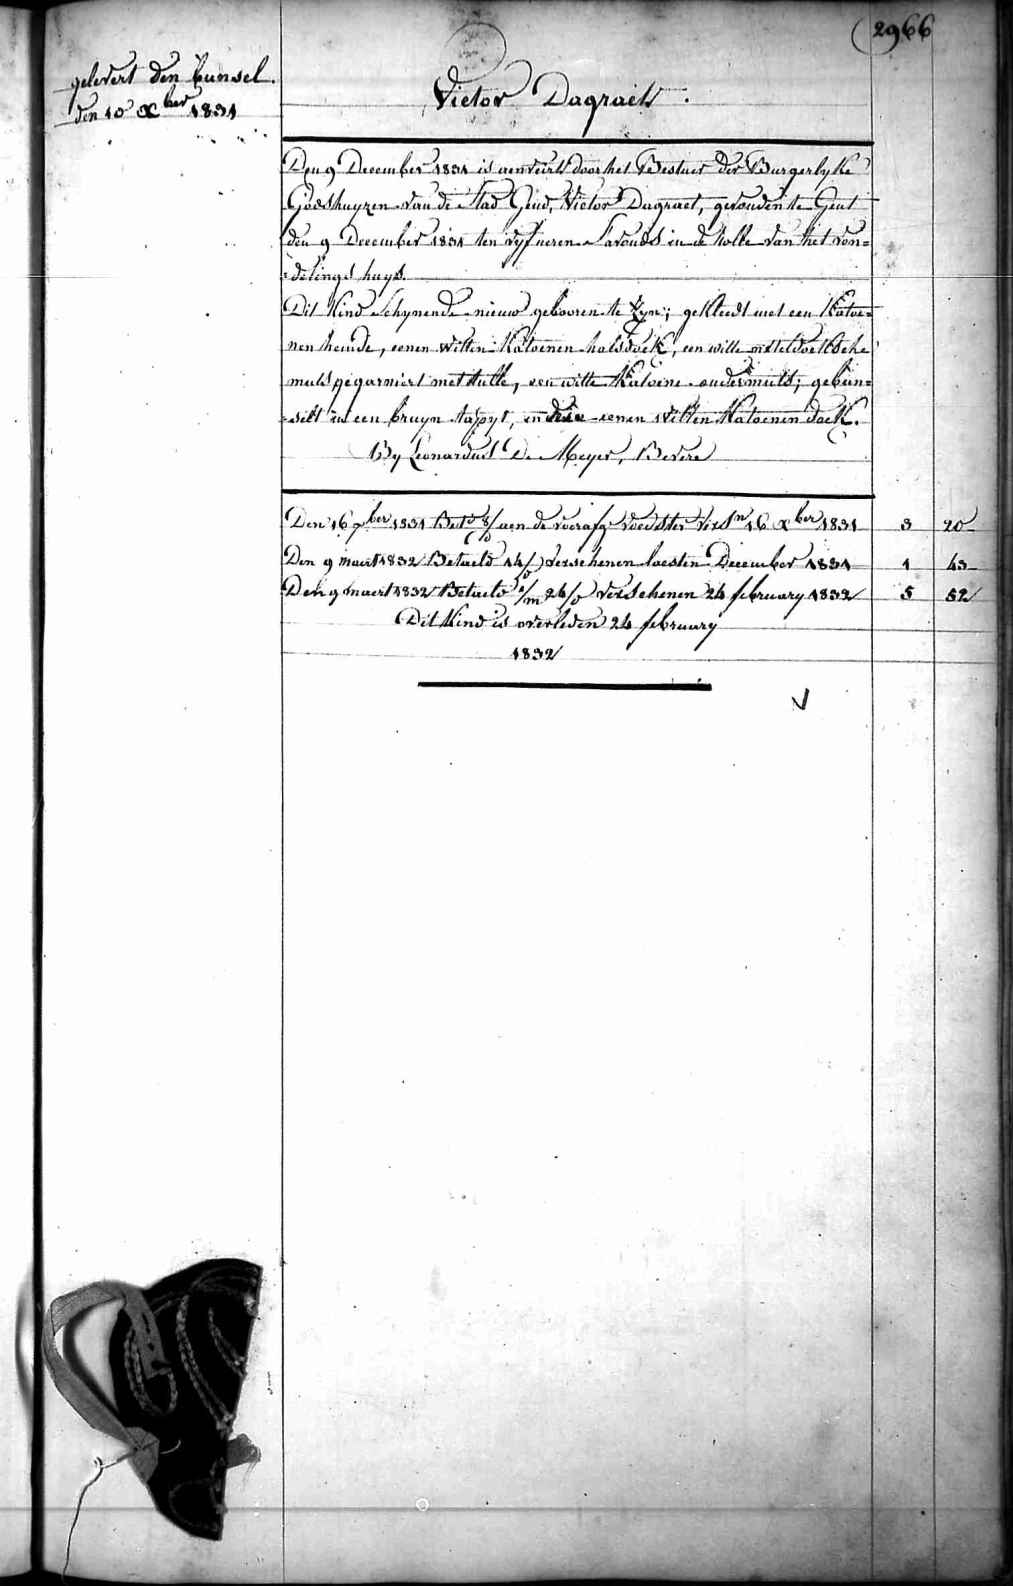 2966
gelevert den bunsel.
den 10 Xber 1831
Victor Dagraet
Den 9 December 1831 is aenveirt door het Bestuer der Burgerlyke
Godshuyzen van de Stad Gend, Victor Dagraet, gevonden te Gent
den 9 December 1831 ten vyf ueren s'avonds in de rolle van het von=
=delings huys
Dit Kind schynende nieuw gebooren te zyn; gekleedt met een Katoe=
nen hemde, eenen witten Katoenen halsdoek, een witte
muts gegarniert met tulle, een witte Katoene ondermuts; gebun=
=selt in een bruyn tapyt, en eenen witten Katoenen doek.
By Leonardus De Meyer, Bevere
Den 16 Xber 1831 Bet aen de voedster 16 Xber 1831 3 20
Den 9 maert 1832 Betaeld 14/ verschenen laesten December 1831 1 43
Den 9 maert 1832 Betaeld 24/ verschenen 24 february 1832 5 52
Dit Kind is overleden 24 february
1832